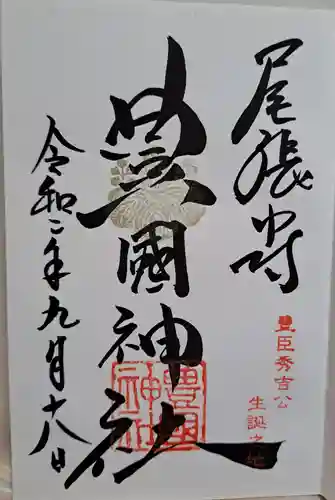 尾張中村
豊臣秀吉公
生誕之地
豐國神社
豊國
神社
令和二年九月十八日